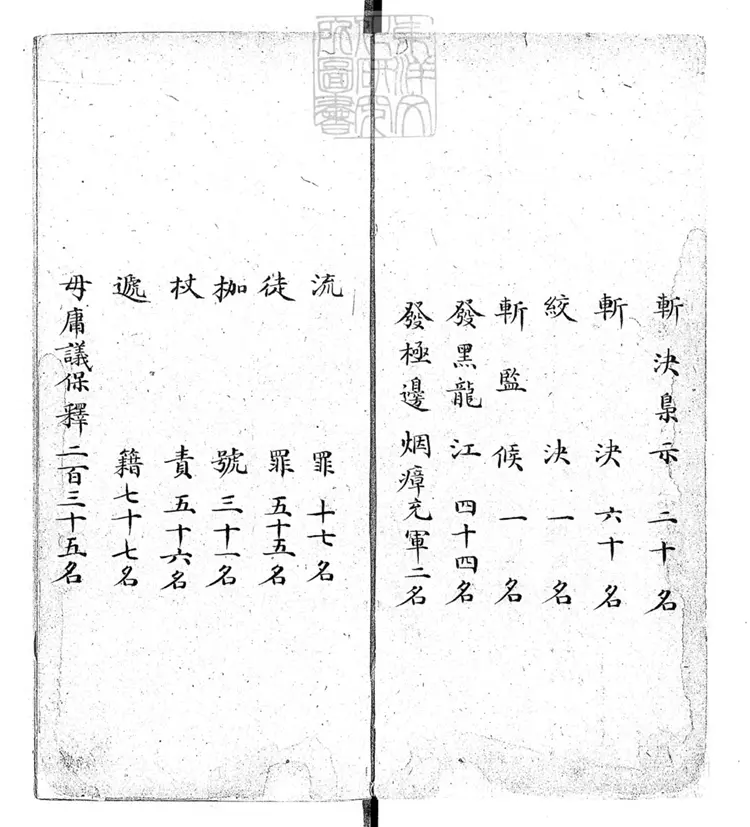 斬決梟示二十名
斬決六十名
絞決一名
斬監候一名
發黑龍江四十四名
發極邊烟瘴充軍二名
流罪十七名
徒罪五十五名
枷號三十一名
杖責五十六名
遞籍七十七名
毋庸議保釋二百三十五名
東洋文化研究所圖書